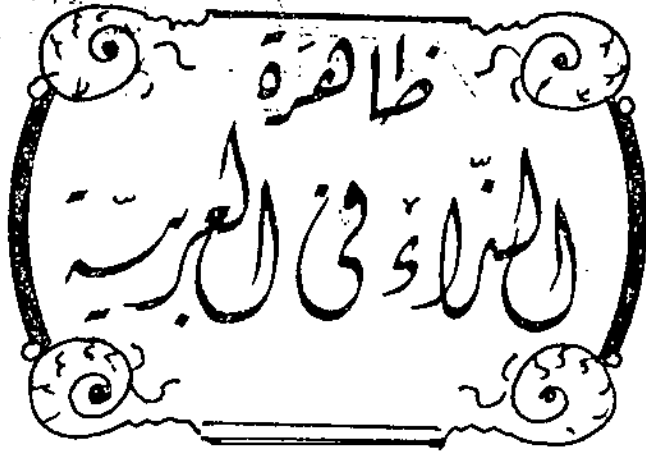 ظاهرة
النداء في العربية